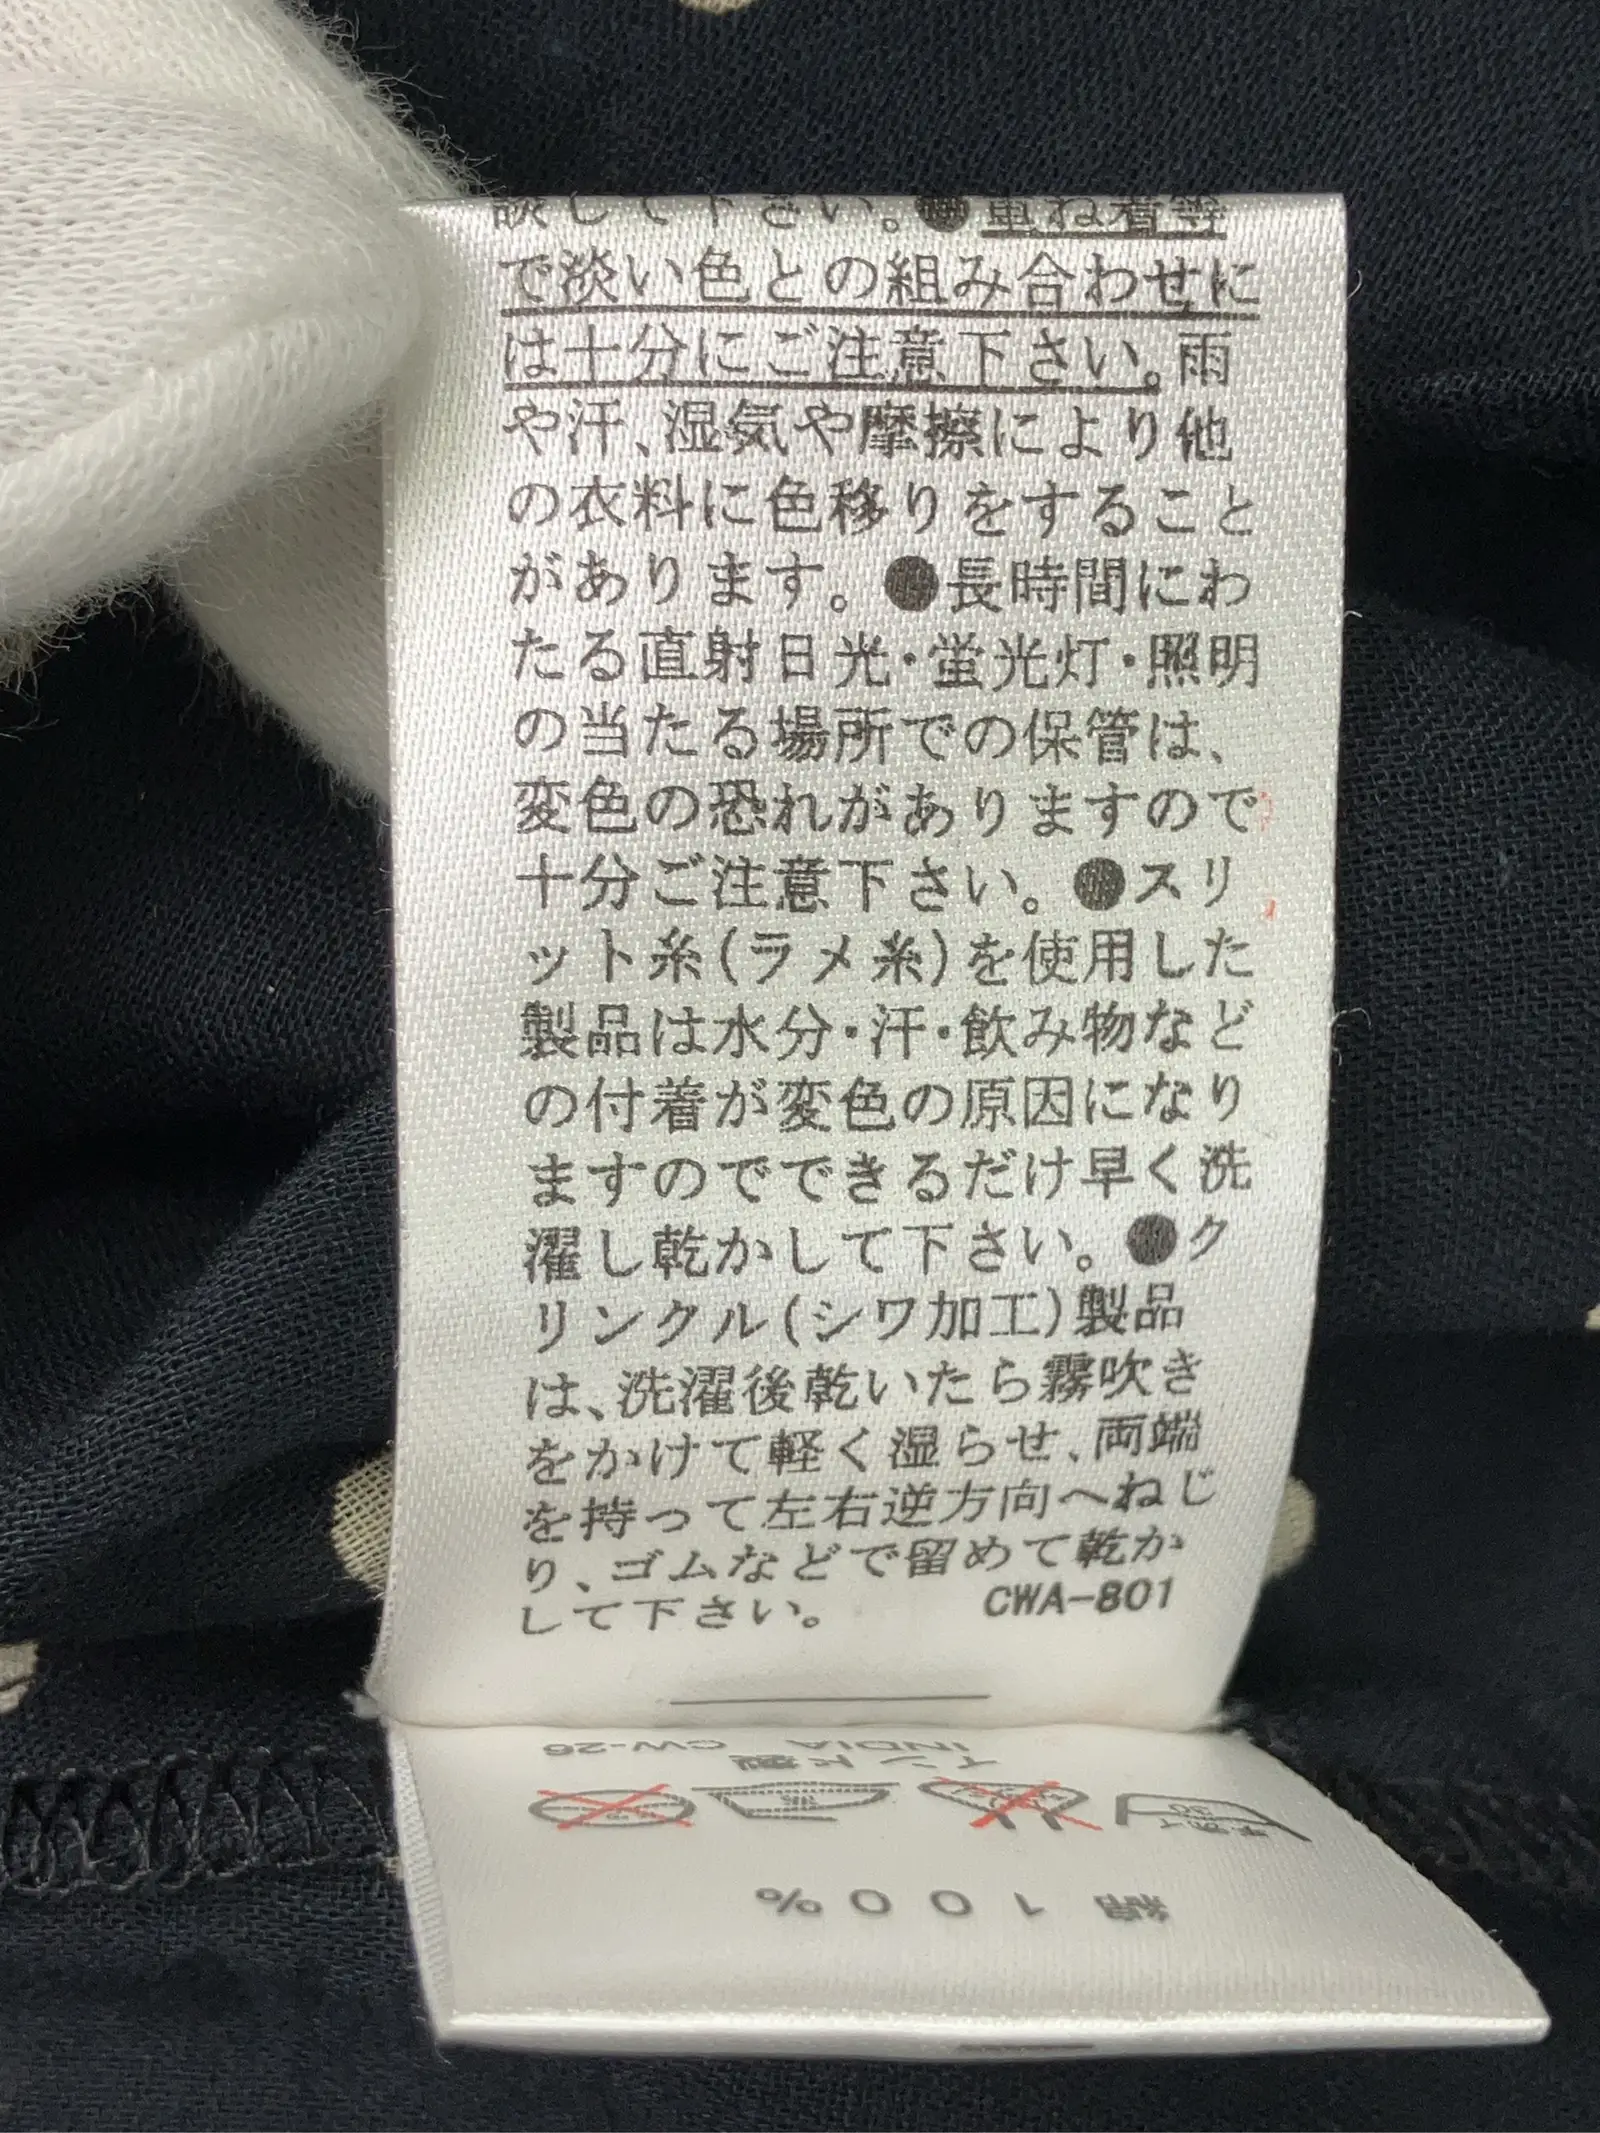 談して下さい。●重ね着等
で淡い色との組み合わせに
は十分にご注意下さい。雨
や汗、湿気や摩擦により他
の衣料に色移りをすること
があります。●長時間にわ
たる直射日光・蛍光灯・照明
の当たる場所での保管は、
変色の恐れがありますので
十分ご注意下さい。●スリ
ット糸(ラメ糸)を使用した
製品は水分・汗・飲み物など
の付着が変色の原因になり
ますのでできるだけ早く洗
濯し乾かして下さい。●ク
リンクル(シワ加工)製品
は、洗濯後乾いたら霧吹き
をかけて軽く湿らせ、両端
を持って左右逆方向へねじ
り、ゴムなどで留めて乾か
して下さい。 CWA-801
綿 100%
手洗イ 30
インド製
INDIA CW-26